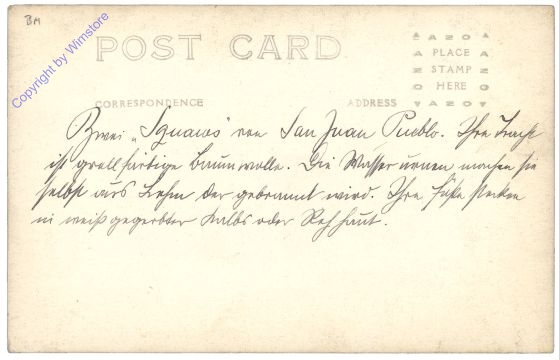 BM
Copyright by Wimstore
POST CARD
AZO
PLACE
STAMP
HERE
AZO
CORRESPONDENCE
ADDRESS
Zwei „Squaws" von San Juan Pueblo. Ihre Tracht
ist grellfarbige Baumwolle. Die Wasserurnen machen sie
selbst aus Lehm der gebrannt wird. Ihre Füße stecken
in weiß gegerbter Kalbs oder Rehhaut.